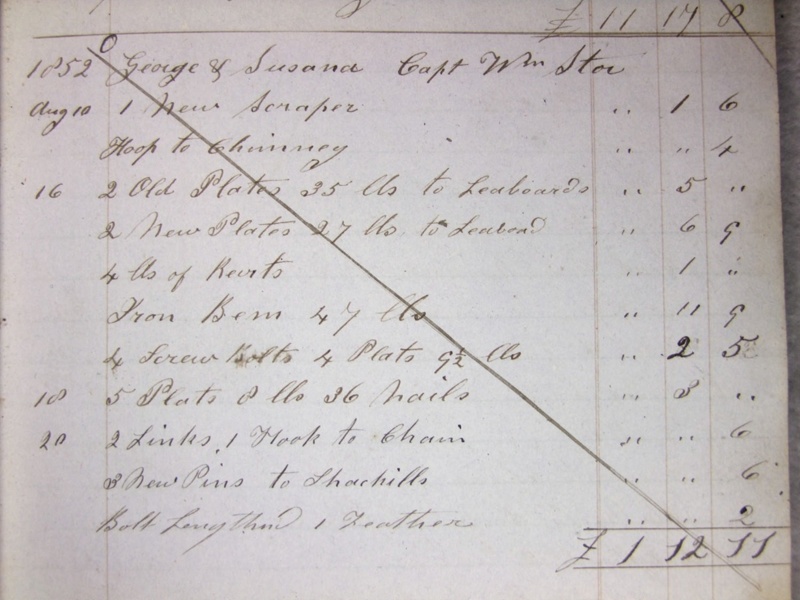 £ 11 17 8
1852 George & Susana Capt Wm Stor
Aug 10 1 New Scraper " 1 6
Hoop to Chimney " " 4
16 2 Old Plates 35 lbs to Leaboards " 5 "
2 New Plates 27 lbs to Leaboad " 6 9
4 lbs of Revts " 1 "
Iron Bem 47 lbs " 11 9
4 Screw Bolts 4 Plats 9½ lbs " 2 5
18 5 Plats 8 lbs 36 Nails " 3 "
20 2 Links, 1 Hook to Chain " " 6
3 New Pins to Shackills " " 6
Bolt Lengthnd 1 Feather " " 2
£ 1 12 11